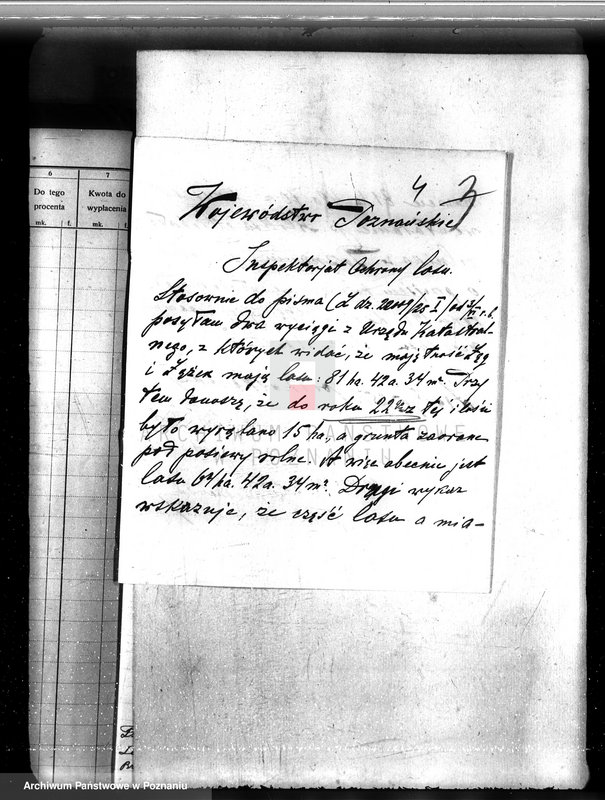 6
7
Do tego
procenta
mk. f.
Kwota do
wypłacenia
mk. f.
4 3
Województwo Poznańskie
Inspektorjat Ochrony lasu.
Stosownie do pisma (L. dz. /25 I/ od r. b.
posyłam dwa wyciągi z Urzędu Katastral-
nego, z których widać, że majętność Łęg
i Łężek mają lasu: 81 ha. 42 a. 34 m². Przy
tem donoszę, że do roku 22 z tej ilości
było wyrąbano 15 ha, a grunta zaorane
pod posiewy rolne. A więc obecnie jest
lasu 64 ha. 42 a. 34 m². Drugi wykaz
wskazuje, że część lasu a mia-
ARCHIWUM PAŃSTWOWE
W POZNANIU
Archiwum Państwowe w Poznaniu